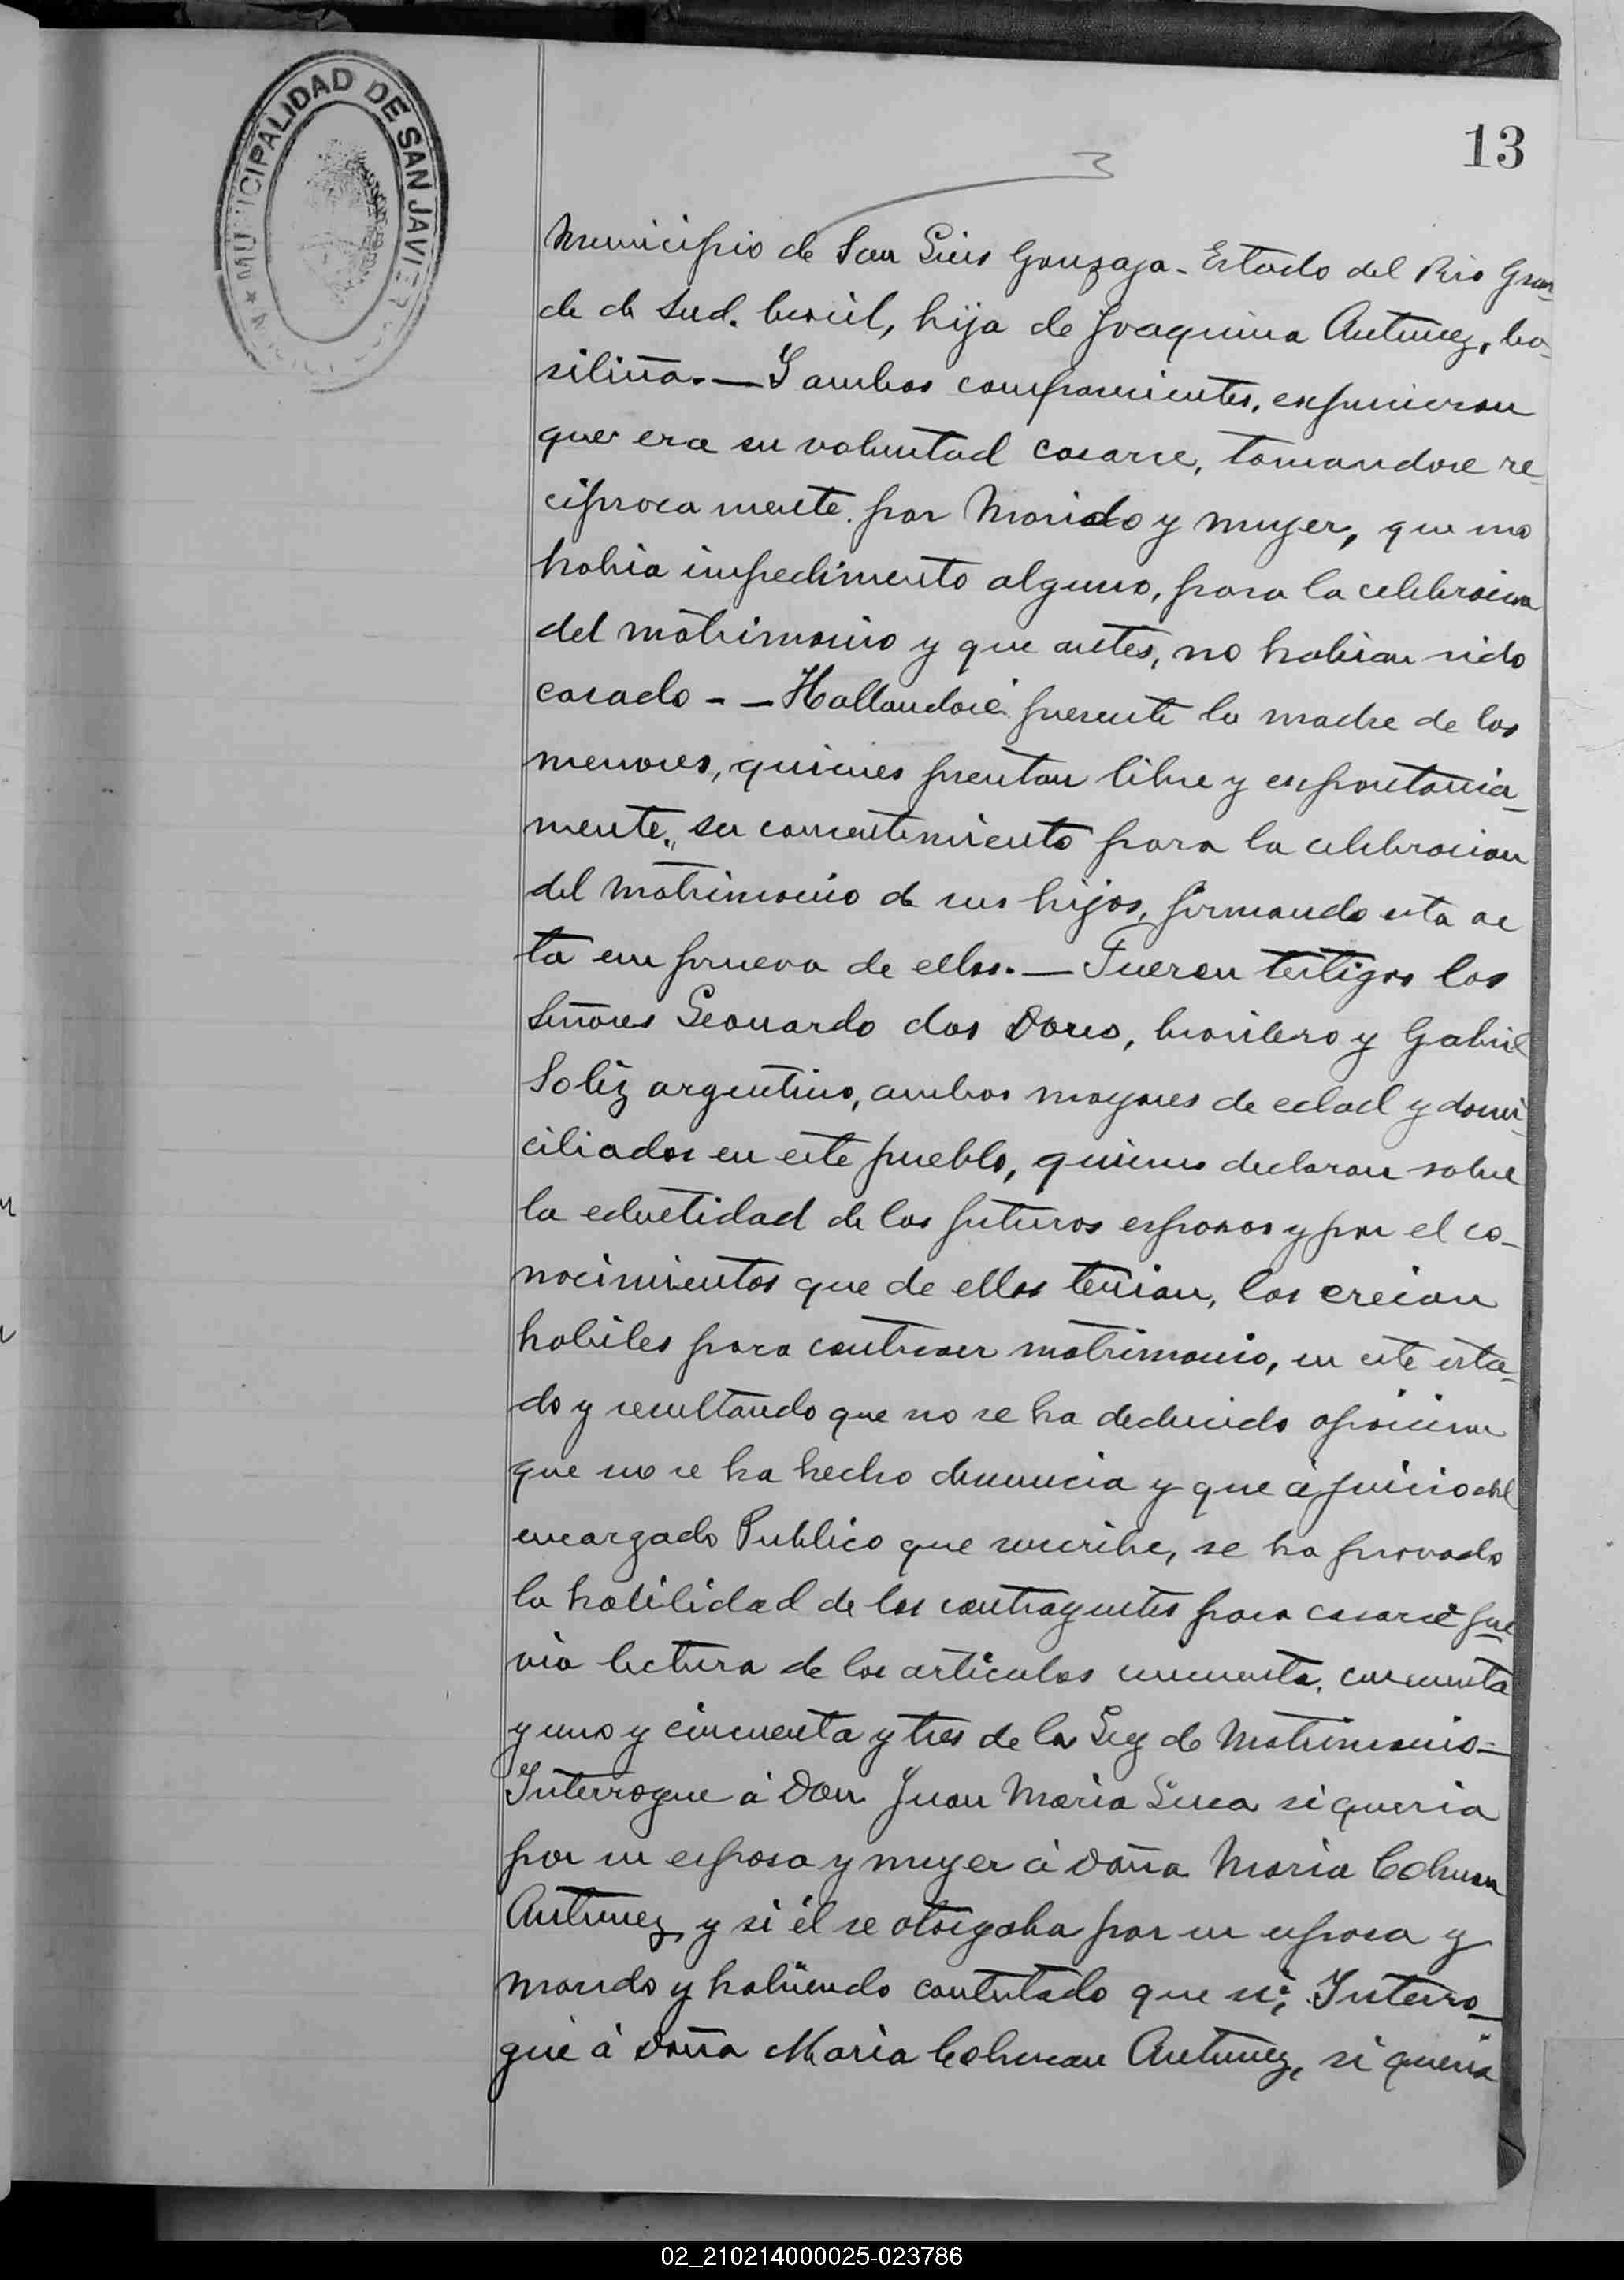 MUNICIPALIDAD DE SAN JAVIER
13
Municipio de San Luis Gonzaga - Estado del Rio Gran-
de de Sud. brasil, hija de Joaquina Antunez, bra-
siliña. — Y ambos comparecientes, expusieron
que era su voluntad casarse, tomandose re-
ciproca mente por Marido y mujer, que no
habia impedimento alguno, para la celebracion
del matrimonio y que antes, no habian sido
casado - — Hallandose presente la madre de los
menores, quienes prestan libre y espontania-
mente, su consentimiento para la celebracion
del Matrimonio de sus hijos, firmando esta ac
ta en prueva de ellos. — Fueron testigos los
Señores Leonardo dos , brasilero y Gabriel
Soliz argentino, ambos mayores de edad y domi-
ciliados en este pueblo, quienes declaran sobre
la eduetidad de los futuros esposos y por el co-
nocimientos que de ellos tenian, los creian
habiles para contraer matrimonio, en este esta-
do y resultando que no se ha deducido oposicion
que no se ha hecho denuncia y que á juicio del
encargado Publico que suscribe, se ha provado
la habilidad de los contrayentes para casarse pre
via lectura de los articulos cincuenta, cincuenta
y uno y cincuenta y tres de la Ley de Matrimonio-
Interrogue á Don Juan Maria si queria
por su esposa y mujer á Doña Maria Colman
Antunez y si él se otorgaba por su esposa y
marido y habiendo contestado que si; Interro-
gué á Doña Maria Colman Antunez, si queria
02_210214000025-023786